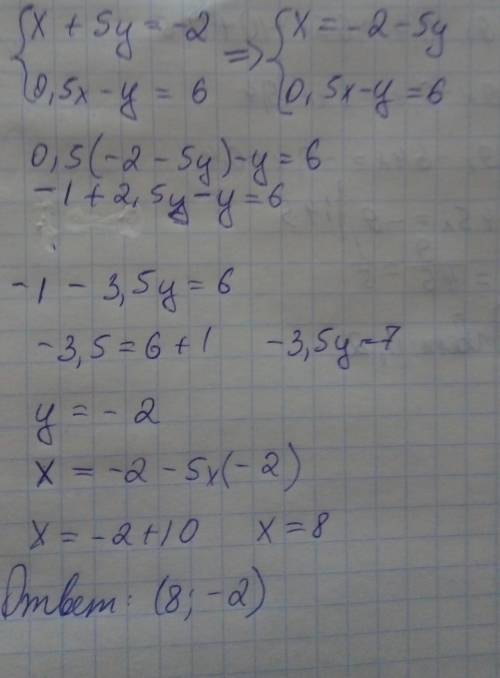 {x + 5y = -2 => {x = -2 - 5y
{0,5x - y = 6 {0,5x - y = 6
0,5(-2 - 5y) - y = 6
-1 + 2,5y - y = 6
-1 - 3,5y = 6
-3,5 = 6 + 1 -3,5y = 7
y = -2
x = -2 - 5x(-2)
x = -2 + 10 x = 8
Ответ: (8; -2)